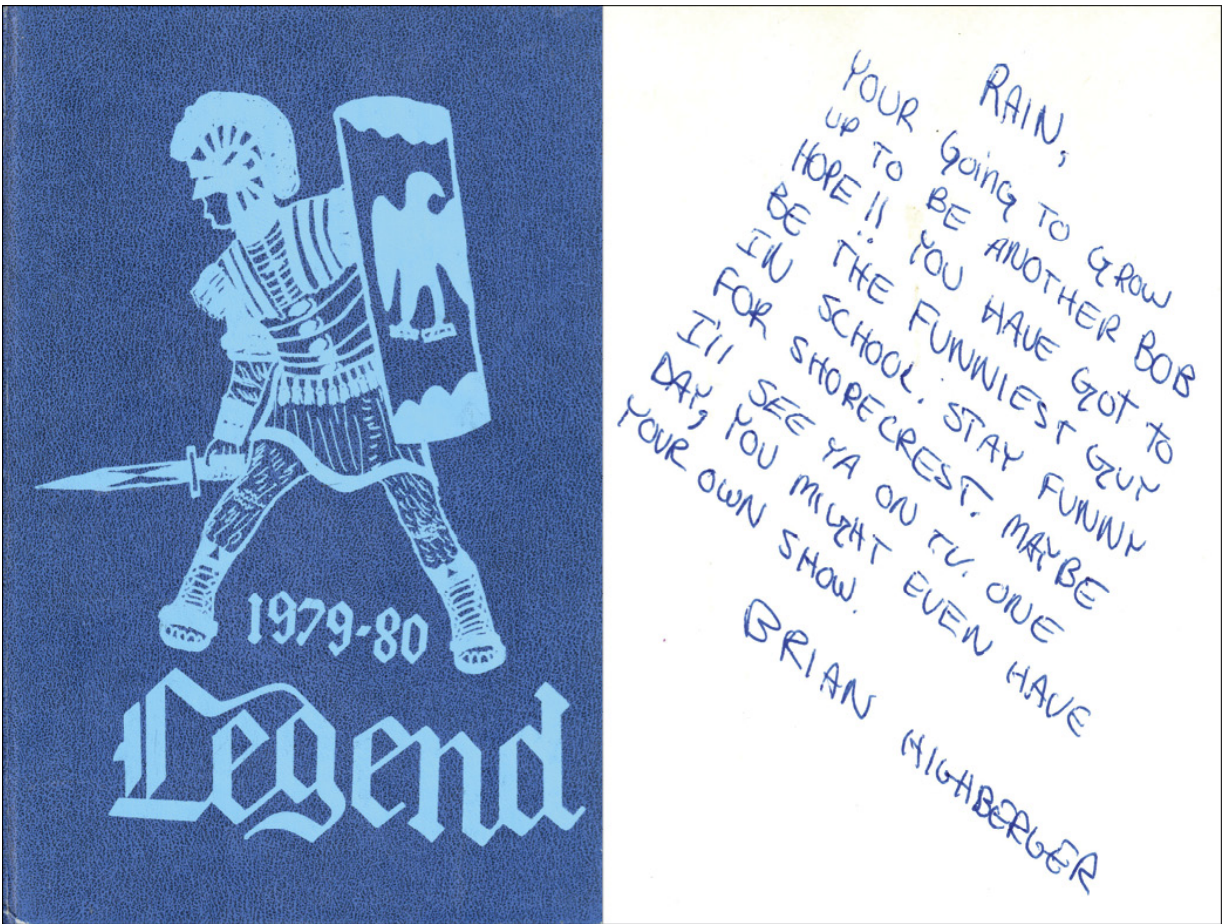 1979-80
Legend
RAIN,
YOUR GOING TO GROW
UP TO BE ANOTHER BOB
HOPE!! YOU HAVE GOT TO
BE THE FUNNIEST GUY
IN SCHOOL. STAY FUNNY
FOR SHORECREST. MAYBE
I'll SEE YA ON T.V. ONE
DAY, YOU MIGHT EVEN HAVE
YOUR OWN SHOW.
BRIAN HIGHBERGER